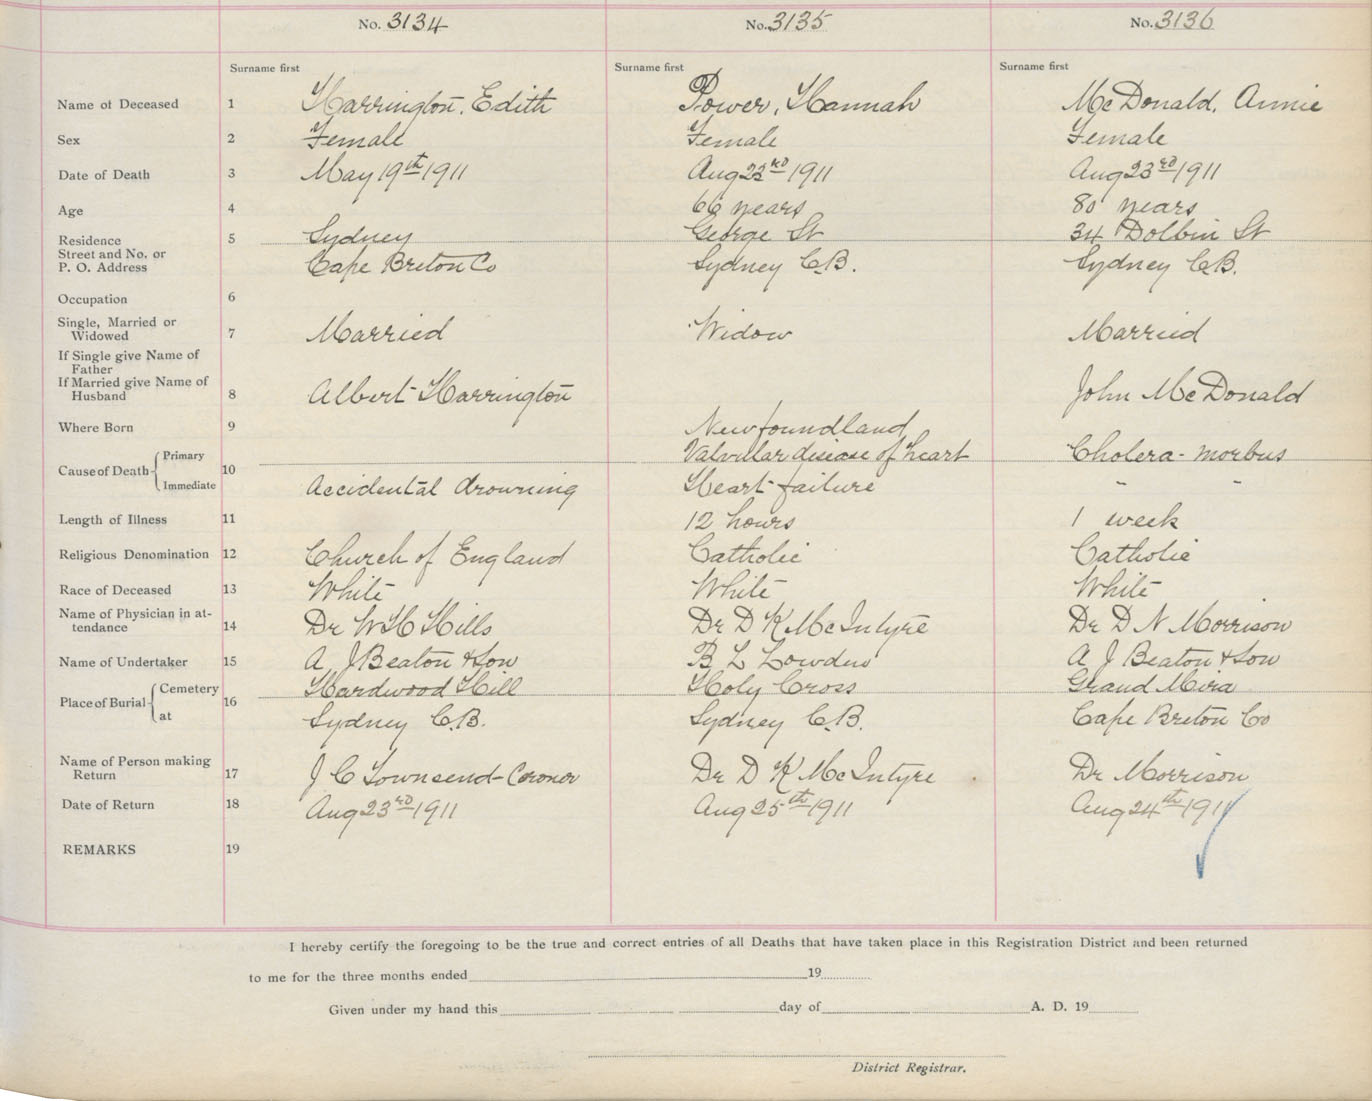 No. 3134 No. 3135 No. 3136
Surname first Surname first Surname first
Name of Deceased 1 Harrington, Edith Power, Hannah McDonald, Annie
Sex 2 Female Female Female
Date of Death 3 May 19th 1911 Aug 23rd 1911 Aug 23rd 1911
Age 4 66 years 80 years
Residence 5 Sydney George St 34 Dolbin St
Street and No. or
P. O. Address Cape Breton Co Sydney C.B. Sydney C.B.
Occupation 6
Single, Married or
Widowed 7 Married Widow Married
If Single give Name of
Father
If Married give Name of
Husband 8 Albert Harrington John McDonald
Where Born 9 Newfoundland
Cause of Death Primary 10 Valvular disease of heart Cholera-morbus
Immediate Accidental drowning Heart failure " "
Length of Illness 11 12 hours 1 week
Religious Denomination 12 Church of England Catholic Catholic
Race of Deceased 13 White White White
Name of Physician in at-
tendance 14 Dr W H Hills Dr D K McIntyre Dr D N Morrison
Name of Undertaker 15 A J Beaton & Son B L Lowden A J Beaton & Son
Place of Burial Cemetery 16 Hardwood Hill Holy Cross Grand Mira
at Sydney C.B. Sydney C.B. Cape Breton Co
Name of Person making
Return 17 J C Townsend-Coroner Dr D K McIntyre Dr Morrison
Date of Return 18 Aug 23rd 1911 Aug 25th 1911 Aug 24th 1911
REMARKS 19
I hereby certify the foregoing to be the true and correct entries of all Deaths that have taken place in this Registration District and been returned
to me for the three months ended 19
Given under my hand this day of A. D. 19
District Registrar.